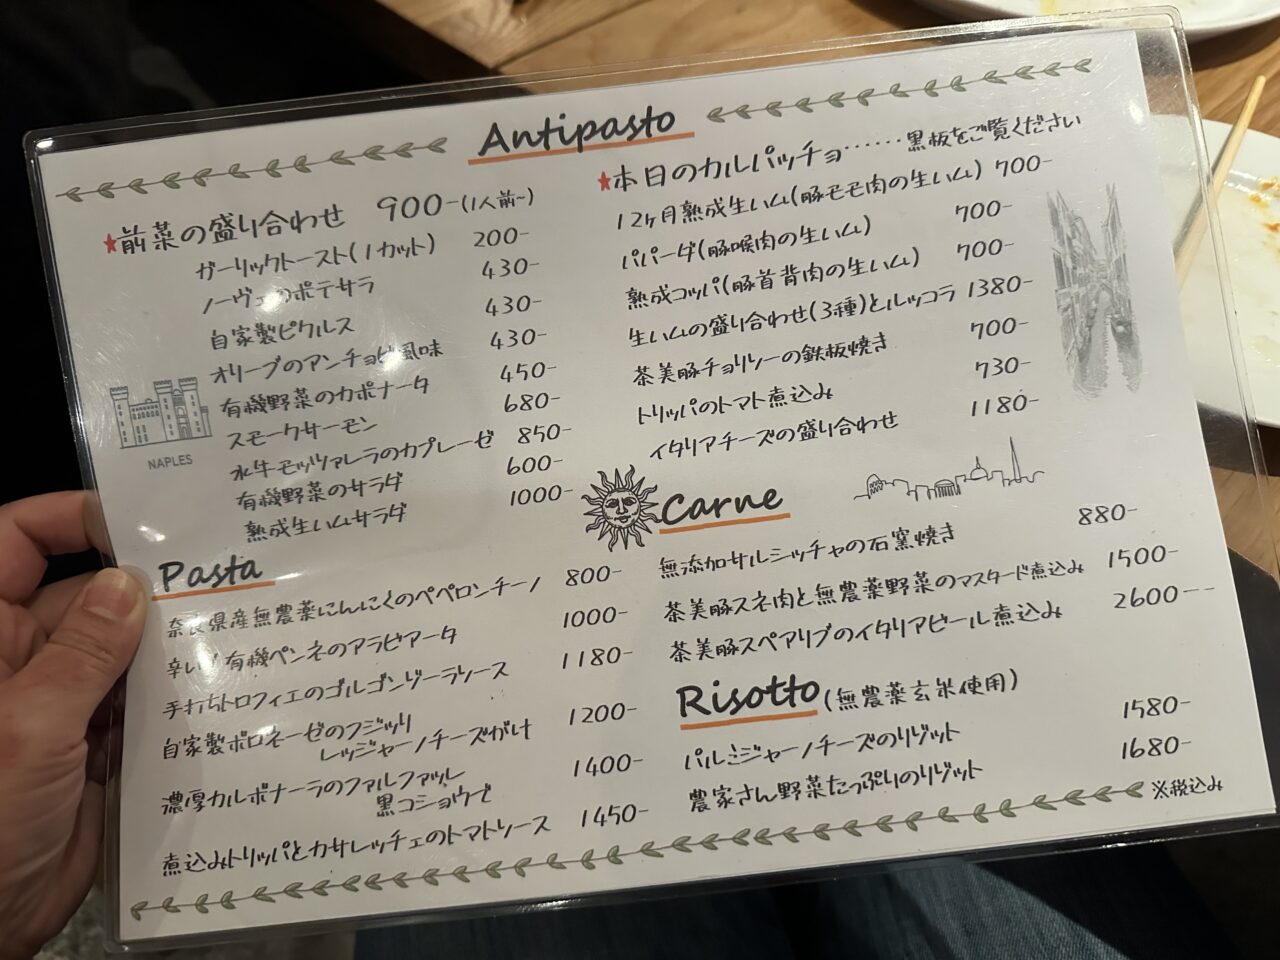 Antipasto
★前菜の盛り合わせ 900-(1人前~)
ガーリックトースト(1カット) 200-
ノーヴェのポテサラ 430-
自家製ピクルス 430-
オリーブのアンチョビ風味 430-
有機野菜のカポナータ 450-
スモークサーモン 680-
水牛モッツァレラのカプレーゼ 850-
有機野菜のサラダ 600-
熟成生ハムサラダ 1000-
NAPLES
★本日のカルパッチョ……黒板をご覧ください
12ヶ月熟成生ハム(豚モモ肉の生ハム) 700-
パパーダ(豚喉肉の生ハム) 700-
熟成コッパ(豚首背肉の生ハム) 700-
生ハムの盛り合わせ(3種)とルッコラ 1380-
茶美豚チョリソーの鉄板焼き 700-
トリッパのトマト煮込み 730-
イタリアチーズの盛り合わせ 1180-
Pasta
奈良県産無農薬にんにくのペペロンチーノ 800-
辛い!有機ペンネのアラビアータ 1000-
手打ちトロフィエのゴルゴンゾーラソース 1180-
自家製ボロネーゼのフジッリ
レッジャーノチーズがけ 1200-
濃厚カルボナーラのファルファッレ
黒コショウで 1400-
煮込みトリッパとカサレッチェのトマトソース 1450-
Carne
無添加サルシッチャの石窯焼き 880-
茶美豚スネ肉と無農薬野菜のマスタード煮込み 1500-
茶美豚スペアリブのイタリアビール煮込み 2600--
Risotto(無農薬玄米使用)
パルミジャーノチーズのリゾット 1580-
農家さん野菜たっぷりのリゾット 1680-
※税込み